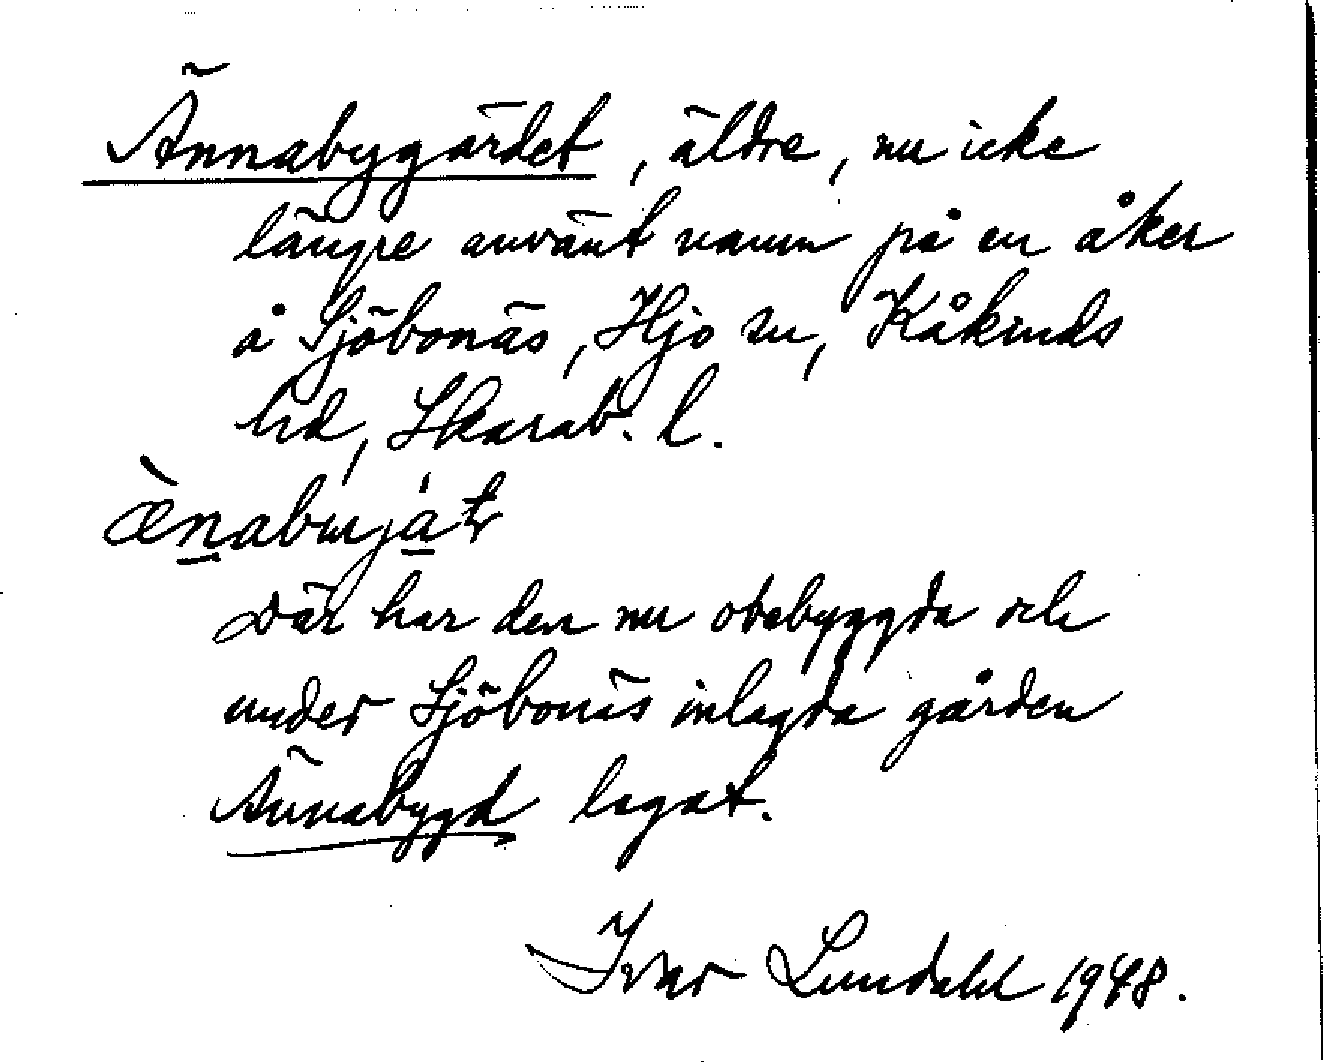 Ännabygärdet, äldre, nu icke
längre använt namn på en åker
å Sjöbonäs, Hjo sn, Kåkinds
hd, Skarab. l.
ænabyjat
Där har den nu obebyggda och
under Sjöbonäs inlagda gården
Ännabygd legat.
Ivar Lundahl 1948.